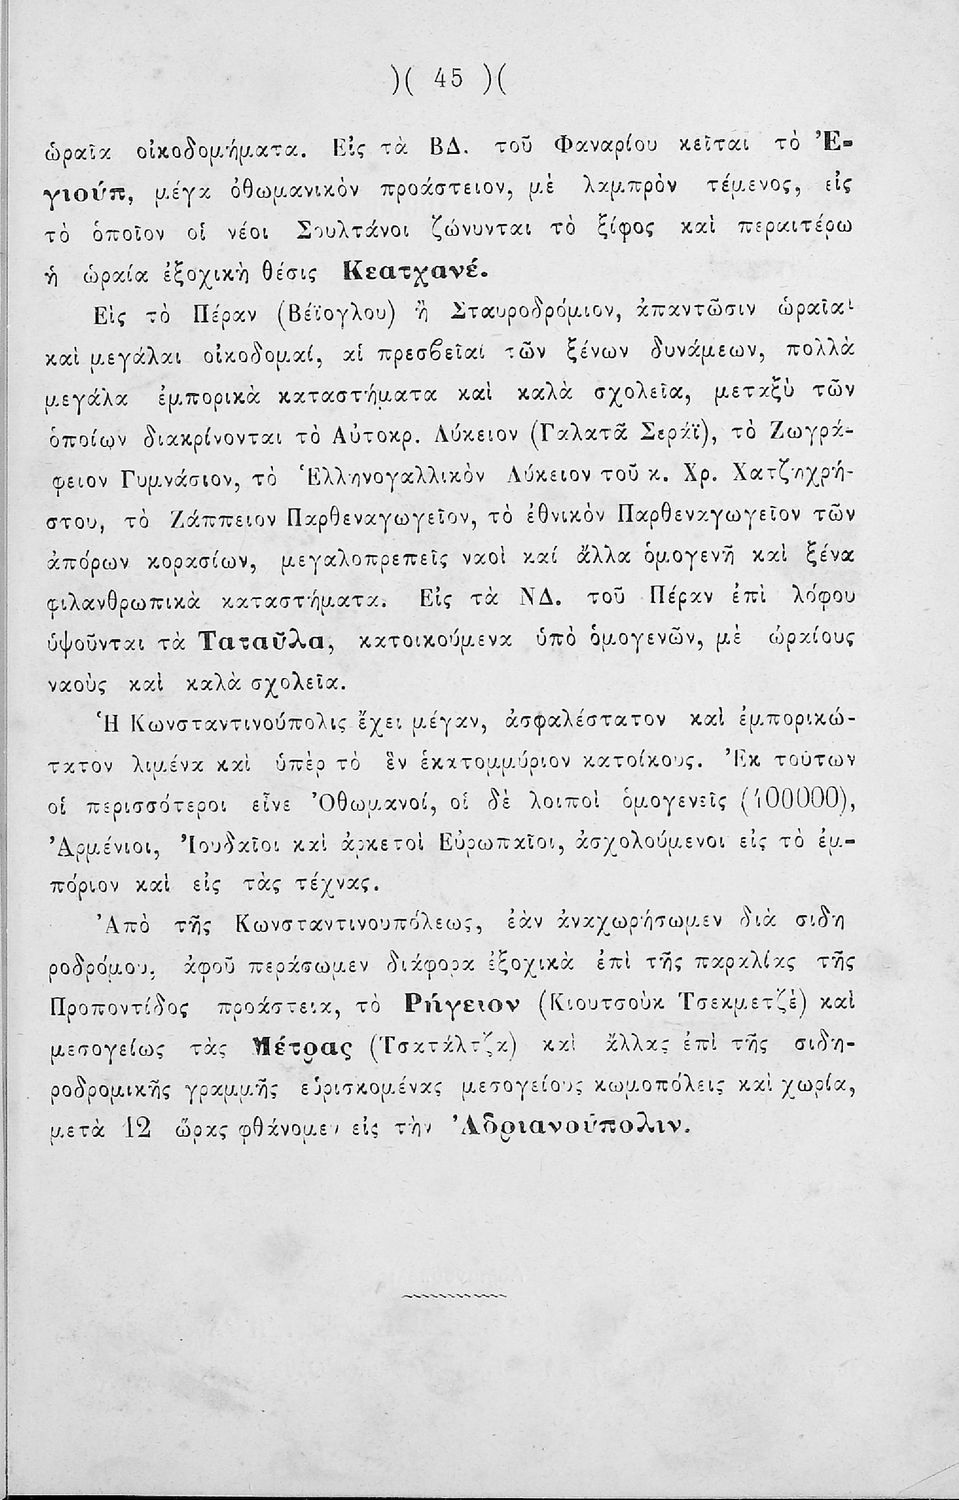 )( 45 )(
ὡραῖα οἰκοδομήματα. Εἰς τὰ ΒΔ. τοῦ Φαναρίου κεῖται τὸ Ἐ-
γιούπ, μέγα ὀθωμανικὸν προάστειον, μὲ λαμπρὸν τέμενος, εἰς
τὸ ὁποῖον οἱ νέοι Σουλτάνοι ζώνυνται τὸ ξίφος καὶ περαιτέρω
ἡ ὡραία ἐξοχικὴ θέσις Κεατχανέ.
Εἰς τὸ Πέραν (Βέϊογλου) ἢ Σταυροδρόμιον, ἀπαντῶσιν ὡραῖαι
καὶ μεγάλαι οἰκοδομαί, αἱ πρεσβεῖαι τῶν ξένων δυνάμεων, πολλὰ
μεγάλα ἐμπορικὰ καταστήματα καὶ καλὰ σχολεῖα, μεταξὺ τῶν
ὁποίων διακρίνονται τὸ Αὐτοκρ. Λύκειον (Γαλατᾶ Σεράϊ), τὸ Ζωγρά-
φειον Γυμνάσιον, τὸ Ἑλληνογαλλικὸν Λύκειον τοῦ κ. Χρ. Χατζηχρή-
στου, τὸ Ζάππειον Παρθεναγωγεῖον, τὸ ἐθνικὸν Παρθεναγωγεῖον τῶν
ἀπόρων κορασίων, μεγαλοπρεπεῖς ναοὶ καί ἄλλα ὁμογενῆ καὶ ξένα
φιλανθρωπικὰ καταστήματα. Εἰς τὰ ΝΔ. τοῦ Πέραν ἐπὶ λόφου
ὑψοῦνται τὰ Ταταῦλα, κατοικούμενα ὑπὸ ὁμογενῶν, μὲ ὡραίους
ναοὺς καὶ καλὰ σχολεῖα.
Ἡ Κωνσταντινούπολις ἔχει μέγαν, ἀσφαλέστατον καὶ ἐμπορικώ-
τατον λιμένα καὶ ὑπὲρ τὸ ἓν ἑκατομμύριον κατοίκους. Ἐκ τούτων
οἱ περισσότεροι εἶνε Ὀθωμανοί, οἱ δὲ λοιποὶ ὁμογενεῖς (100000),
Ἀρμένιοι, Ἰουδαῖοι καὶ ἀρκετοὶ Εὐρωπαῖοι, ἀσχολούμενοι εἰς τὸ ἐμ-
πόριον καὶ εἰς τὰς τέχνας.
Ἀπὸ τῆς Κωνσταντινουπόλεως, ἐὰν ἀναχωρήσωμεν διὰ σιδη
ροδρόμου, ἀφοῦ περάσωμεν διάφορα ἐξοχικὰ ἐπὶ τῆς παραλίας τῆς
Προποντίδος προάστεια, τὸ Ρήγειον (Κιουτσοὺκ Τσεκμετζὲ) καὶ
μεσογείως τὰς Μέτρας (Τσατάλτζα) καὶ ἄλλας ἐπὶ τῆς σιδη-
ροδρομικῆς γραμμῆς εὑρισκομένας μεσογείους κωμοπόλεις καὶ χωρία,
μετὰ 12 ὥρας φθάνομεν εἰς τὴν Ἀδριανούπολιν.